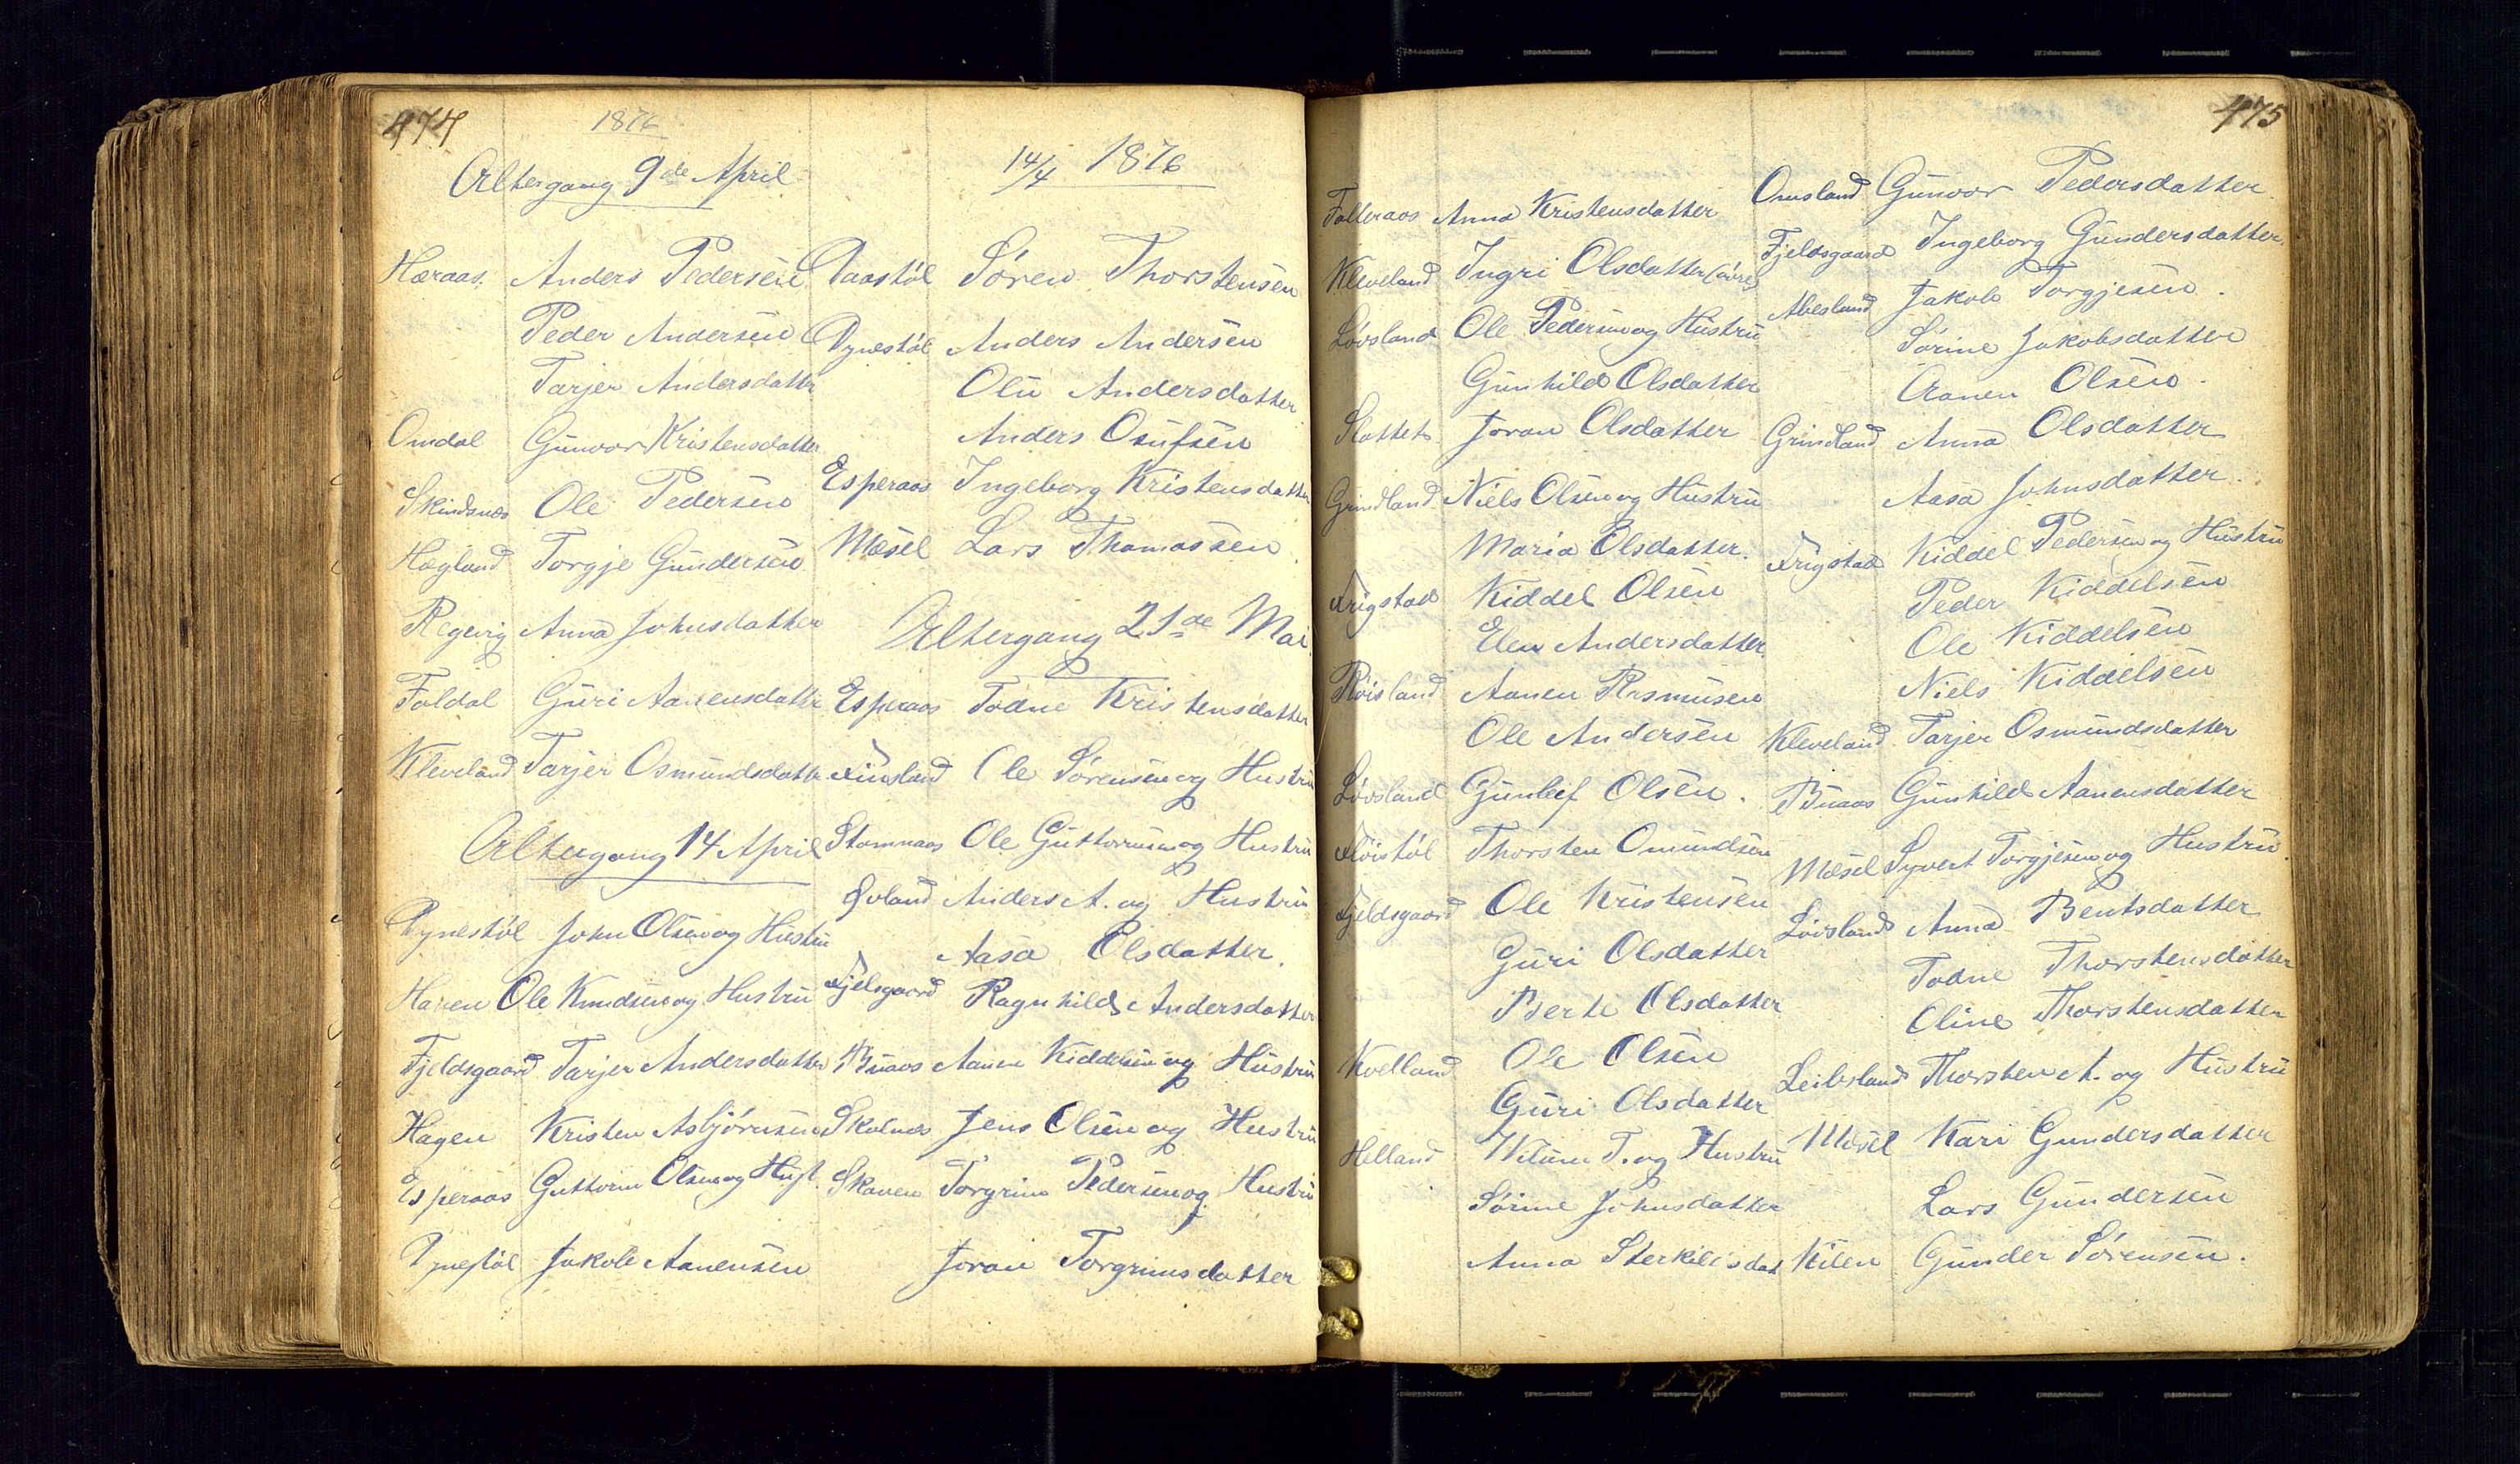 474
1876
Altergang 9de April
Hæraas. Anders Pedersen
Peder Andersen
Tarjer Andersdatter
Omdal Gunvor Kristensdatter
Skindsnes Ole Pedersen
Høgland Torgje Gundersen
Regevig Anna Johnsdatter
Foldal Guri Aanensdatter
Kleveland Tarjer Osmundsdatter
Altergang 14 April
Pynestøl John Olsen og Hustru
Haven Ole Knudsen og Hustru
Fjeldsgaard Tarjer Andersdatter
Hagen Kristen Asbjørnsen
Esperaas Guttorm Olsen og Hust.
Pynestøl Jakob Aanensen
14/4 1876
Paastøl Søren Thorstensen
Pynestøl Anders Andersen
Olu Andersdatter
Anders Osufsen
Esperaas Ingeborg Kristensdatter
Mæsel Lars Thomassen
Altergang 21de Mai
Esperaas Todne Kristensdatter
Finsland Ole Sørensen og Hustru
Stomnaas Ole Guttormsen og Hustru
Anders A. og Hustru
Aasa Olsdatter.
Fjelsgaard Ragnhild Andersdatter
Buaas Aanen Kiddelsen og Hustru
Skolnes Jens Olsen og Hustru
Skaven Torgrim Pedersen og Hustru
Joran Torgrimsdatter
475
Anna Kristensdatter
Kleveland Ingri Olsdatter (øvre)
Løvsland Ole Pedersen og Hustru
Gunhild Olsdatter
Slottet Joran Olsdatter
Grindland Niels Olsen og Hustru
Maria Olsdatter.
Frigstad Kiddel Olsen
Elen Andersdatter.
Røisland Aanen Rasmusen
Ole Andersen
Løvsland Gunleif Olsen.
Fløistøl Thorsten Omundsen
Fjeldsgaard Ole Kristensen
Guri Olsdatter
Berte Olsdatter
Kvelland Ole Olsen
Guri Olsdatter
Helland T. og Hustru
Sørine Johnsdatter
Anna Sterkelisdat
Omsland Gunvor Pedersdatter
Fjeldsgaard Ingeborg Gundersdatter.
Abesland Jakob Torgjesen.
Sørine Jakobsdatter
Aanen Olsen.
Grindland Anna Olsdatter
Aasa Johnsdatter.
Frigstad Kiddel Pedersen og Hustru
Peder Kiddelsen
Ole Kiddelsen
Niels Kiddelsen
Kleveland Tarjer Osmundsdatter
Buaas Gunhild Aanensdatter
Mæsel Syvert Torgjesen og Hustru.
Løvsland Anna Bentsdatter
Todne Thorstensdatter
Oline Thorstensdatter
Leibsland Thorsten A. og Hustru
Mæsel Kari Gundersdatter
Lars Gundersen
Kilen Gunder Sørensen.